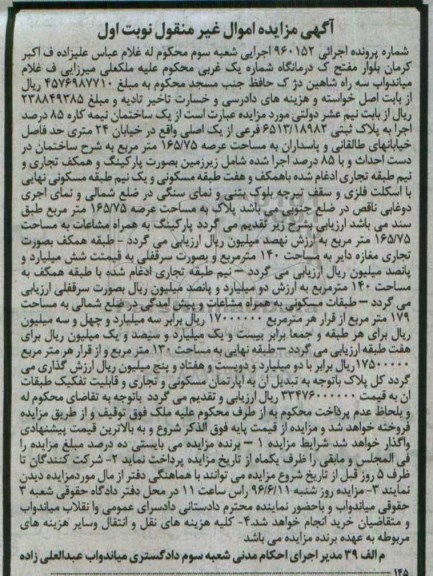 آگهی مزایده اموال غیر منقول نوبت اول
شماره پرونده اجرائی ۹۶۰۱۵۲ اجرایی شعبه سوم محکوم له غلام عباس علیزاده ف اکبر
کرمان بلوار مفتح ک درمانگاه شماره یک غربی محکوم علیه ملکعلی میرزایی ف غلام
میاندواب سه راه شاهین دژ ک حافظ جنب مسجد محکوم به مبلغ ۴۵۷۶۹۸۷۷۱۰ ریال
از بابت اصل خواسته و هزینه های دادرسی و خسارت تاخیر تادیه و مبلغ ۲۳۸۸۴۹۳۸۵
ریال از بابت نیم عشر دولتی مورد مزایده عبارت است از یک ساختمان نیمه کاره ۸۵ درصد
اجرا به پلاک ثبتی ۶۵۱۳/۱۸۹۸۳ فرعی از یک اصلی واقع در خیابان ۲۴ متری حد فاصل
خیابانهای طالقانی و پاسداران به مساحت عرصه ۱۶۵/۷۵ متر مربع به شرح ساختمان در
دست احداث و با ۸۵ درصد اجرا شده شامل زیرزمین بصورت پارکینگ و همکف تجاری و
نیم طبقه تجاری ادغام شده باهمکف و هفت طبقه مسکونی و یک نیم طبقه مسکونی نهایی
با اسکلت فلزی و سقف تیرچه بلوک بتنی و نمای سنگی در ضلع شمالی و نمای آجری
دوغابی ناقص در ضلع جنوبی می باشد پلاک به مساحت عرصه ۱۶۵/۷۵ متر مربع طبق
سند می باشد ارزیابی بشرح زیر تقدیم می گردد پارکینگ به همراه مشاعات به مساحت
۱۶۵/۷۵ متر مربع به ارزش نهصد میلیون ریال ارزیابی می گردد – طبقه همکف بصورت
تجاری مغازه دایر به مساحت ۱۴۰ مترمربع و بصورت سرقفلی به قیمتت شش میلیارد و
پانصد میلیون ریال ارزیابی می گردد – نیم طبقه تجاری ادغام شده با طبقه همکف به
مساحت ۱۴۰ مترمربع به ارزش دو میلیارد و پانصد میلیون ریال بصورت سرقفلی ارزیابی
می گردد – طبقات مسکونی به همراه مشاعات و پیش آمدگی در ضلع شمالی به مساحت
۱۷۹ متر مربع از قرار هر مترمربع ۱۷۰۰۰۰۰۰ ریال برابر سه میلیارد و چهل و سه میلیون
ریال برای هر طبقه و جمعا برابر بیست و یک میلیارد و سیصد و یک میلیون ریال برای
هفت طبقه ارزیابی می گردد – طبقه نهایی به مساحت ۱۳۰ متر مربع و از قرار هر متر مربع
۱۷۵۰۰۰۰۰ ریال برابر با دو میلیارد و دویست و هفتاد و پنج میلیون ریال ارزش گذاری می
گردد کل پلاک باتوجه به تبدیل آن به آپارتمان مسکونی و تجاری و قابلیت تفکیک طبقات
آن به قیمت ۳۳۴۷۶۰۰۰۰۰۰ ریال ارزیابی و تقدیم می گردد باتوجه به تقاضای محکوم له
و بلحاظ عدم پرداخت محکوم به از طرف محکوم علیه ملک فوق توقیف و از طریق مزایده
فروخته خواهد شد و مزایده از قیمت پایه فوق الذکر شروع و به بالاترین قیمت پیشنهادی
واگذار خواهد شد شرایط مزایده ۱ – برنده مزایده می بایستی ده درصد مبلغ مزایده را
فی المجلس و مابقی را ظرف یکماه از تاریخ مزایده پرداخت نماید ۲- شرکت کنندگان تا
ظرف ۵ روز قبل از تاریخ شروع مزایده می توانند با هماهنگی دفتر از مال موردمزایده دیدن
نمایند ۳- مزایده روز شنبه ۹۶/۶/۱۱ راس ساعت ۱۱ در محل دفتر دادگاه حقوقی شعبه ۳
حقوقی میاندواب و باحضور نماینده محترم دادستانی دادسرای عمومی وا نقلاب میاندواب
و متقاضیان خرید انجام خواهد شد.۴- کلیه هزینه های نقل و انتقال وسایر هزینه های
مربوطه به عهده برنده مزایده می باشد
م الف ۳۹ مدیر اجرای احکام مدنی شعبه سوم دادگستری میاندواب عبدالعلی زاده
۱۴۵